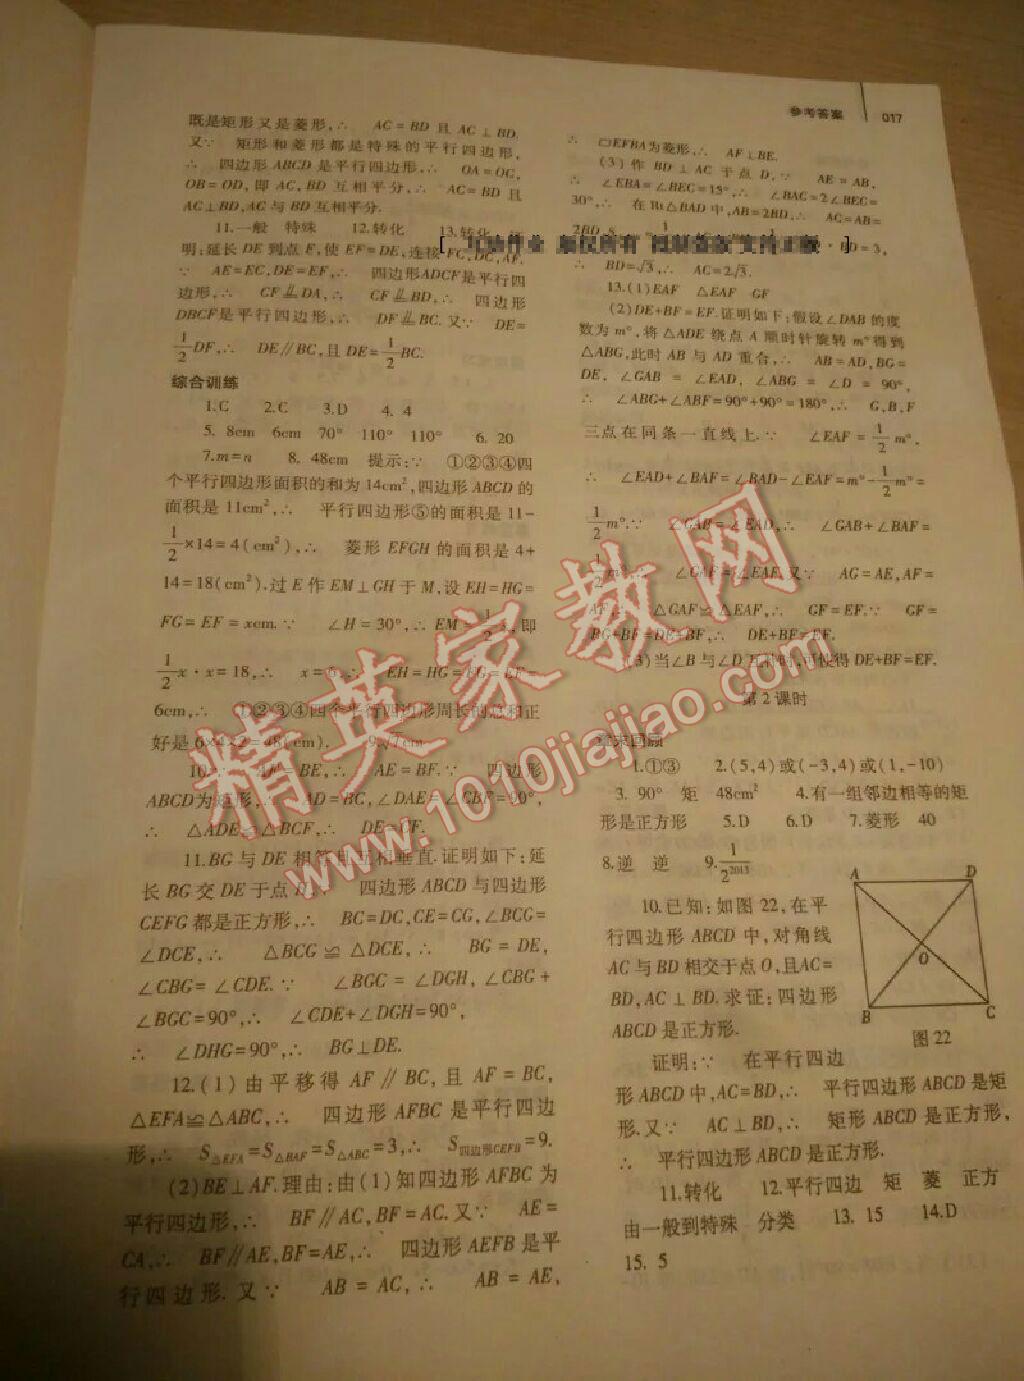 参考答案 017
既是矩形又是菱形,∴ AC=BD且AC⊥BD.
又∵ 矩形和菱形都是特殊的平行四边形,
∴ 四边形ABCD是平行四边形,∴ OA=OC,
OB=OD,即AC,BD互相平分,∴ AC=BD且
AC⊥BD,AC与BD互相平分.
11.一般 特殊 12.转化 13.转化
明:延长DE到点F,使EF=DE,连接FC,DC,AF.
∵ AE=EC,DE=EF,∴ 四边形ADCF是平行四
边形,∴ CF∥DA,∴ CF∥BD,∴ 四边形
DBCF是平行四边形,∴ DF∥BC.又∵ DE=
1/2DF,∴ DE∥BC,且DE=1/2BC.
综合训练
1.C 2.C 3.D 4. 4
5. 8cm 6cm 70° 110° 110° 6. 20
7.m=n 8. 48cm 提示:∵ ①②③④四
个平行四边形面积的和为14cm²,四边形ABCD的
面积是11cm²,∴ 平行四边形⑤的面积是11-
1/2×14=4(cm²),∴ 菱形EFGH的面积是4+
14=18(cm²).过E作EM⊥GH于M,设EH=HG=
FG=EF=xcm.∵ ∠H=30°,∴ EM=1/2x,即
1/2x·x=18,∴ x=6,∴ EH=HG=FG=EF=
6cm,∴ ①②③④四个平行四边形周长的总和正
好是6×4×2=48(cm). 9.√7cm
10.∵ AF=BE,∴ AE=BF.∵ 四边形
ABCD为矩形,∴ AD=BC,∠DAE=∠CBF=90°,
∴ △ADE≌△BCF,∴ DE=CF.
11.BG与DE相等且互相垂直.证明如下:延
长BG交DE于点H,∵ 四边形ABCD与四边形
CEFG都是正方形,∴ BC=DC,CE=CG,∠BCG=
∠DCE,∴ △BCG≌△DCE,∴ BG=DE,
∠CBG=∠CDE.∵ ∠BGC=∠DGH,∠CBG+
∠BGC=90°,∴ ∠CDE+∠DGH=90°,
∴ ∠DHG=90°,∴ BG⊥DE.
12.(1)由平移得AF∥BC,且AF=BC,
△EFA≌△ABC,∴ 四边形AFBC是平行四边
形,∴ S△EFA=S△BAF=S△ABC=3,∴ S四边形CEFB=9.
(2)BE⊥AF.理由:由(1)知四边形AFBC为
平行四边形,∴ BF∥AC,BF=AC.又∵ AE=
CA,∴ BF∥AE,BF=AE,∴ 四边形AEFB是平
行四边形.又∵ AB=AC,∴ AB=AE,
∴ ▱EFBA为菱形,∴ AF⊥BE.
(3)作BD⊥AC于点D,∵ AE=AB,
∴ ∠EBA=∠BEC=15°,∴ ∠BAC=2∠BEC=
30°,∴ 在Rt△BAD中,AB=2BD,∴ AC=AB=
2BD BD=3,
∴ BD=√3,∴ AC=2√3.
13.(1)EAF △EAF GF
(2)DE+BF=EF.证明如下:假设∠DAB的度
数为m°,将△ADE绕点A顺时针旋转m°得到
△ABG,此时AB与AD重合,∴ AB=AD,BG=
DE,∠GAB=∠EAD,∠ABG=∠D=90°,
∴ ∠ABG+∠ABF=90°+90°=180°,∴ G,B,F
三点在同条一直线上.∵ ∠EAF=1/2m°,
∴ ∠EAD+∠BAF=∠BAD-∠EAF=m°-1/2m°=
1/2m°.∵ ∠GAB=∠EAD,∴ ∠GAB+∠BAF=
1/2m°,∴ ∠GAF=∠EAF.又∵ AG=AE,AF=
AF,∴ △GAF≌△EAF,∴ GF=EF.∵ GF=
BG+BF=DE+BF,∴ DE+BF=EF.
(3)当∠B与∠D互补时,可使得DE+BF=EF.
第2课时
章末回顾
1.①③ 2.(5,4)或(-3,4)或(1,-10)
3. 90° 矩 48cm² 4.有一组邻边相等的矩
形是正方形 5.D 6.D 7.菱形 40
8.逆 逆 9.1/2²⁰¹³
10.已知:如图22,在平
行四边形ABCD中,对角线
AC与BD相交于点O,且AC=
BD,AC⊥BD.求证:四边形
ABCD是正方形.
A D
O
B C
图22
证明:∵ 在平行四边
形ABCD中,AC=BD,∴ 平行四边形ABCD是矩
形.又∵ AC⊥BD,∴ 矩形ABCD是正方形,
∴ 平行四边形ABCD是正方形.
11.转化 12.平行四边 矩 菱 正方
由一般到特殊 分类 13. 15 14.D
15. 5
精英家教网
www.1010jiajiao.com